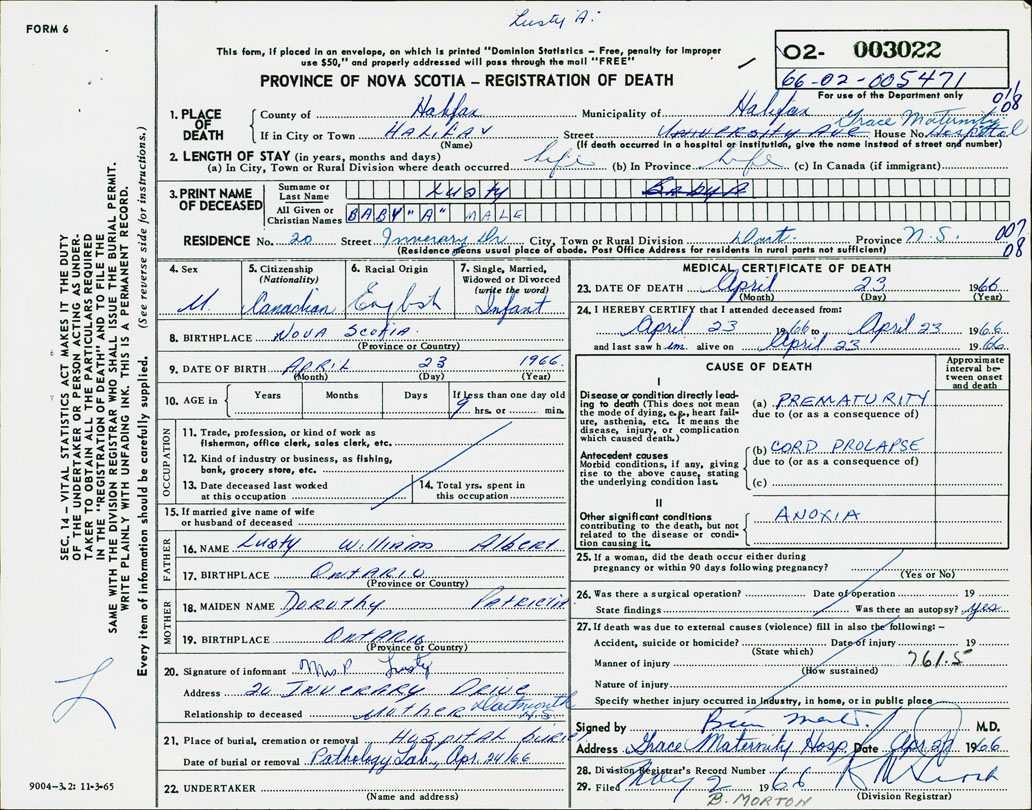 Lusty A.
FORM 6
This form, if placed in an envelope, on which is printed "Dominion Statistics – Free, penalty for improper
use $50," and properly addressed will pass through the mail "FREE"
PROVINCE OF NOVA SCOTIA – REGISTRATION OF DEATH
02- 003022
66-02-005471
For use of the Department only
SEC. 14 – VITAL STATISTICS ACT MAKES IT THE DUTY
OF THE UNDERTAKER OR PERSON ACTING AS UNDER-
TAKER TO OBTAIN ALL THE PARTICULARS REQUIRED
IN THE "REGISTRATION OF DEATH" AND TO FILE THE
SAME WITH THE DIVISION REGISTRAR WHO SHALL ISSUE THE BURIAL PERMIT.
WRITE PLAINLY WITH UNFADING INK. THIS IS A PERMANENT RECORD.
Every item of information should be carefully supplied. (See reverse side for instructions.)
1. PLACE OF DEATH
County of Halifax Municipality of Halifax
Grace Maternity
If in City or Town HALIFAX Street UNIVERSITY AVE House No. Hospital
(Name) (If death occurred in a hospital or institution, give the name instead of street and number)
2. LENGTH OF STAY (in years, months and days)
(a) In City, Town or Rural Division where death occurred life (b) In Province life (c) In Canada (if immigrant)
3. PRINT NAME OF DECEASED
Surname or Last Name LUSTY BABY A
All Given or Christian Names BABY "A" MALE
RESIDENCE No. 20 Street Inverary Dr City, Town or Rural Division Dart. Province N.S.
007
08
(Residence means usual place of abode. Post Office Address for residents in rural parts not sufficient)
4. Sex M.
5. Citizenship (Nationality) Canadian
6. Racial Origin English
7. Single, Married, Widowed or Divorced (write the word) Infant
8. BIRTHPLACE NOVA SCOTIA
(Province or Country)
9. DATE OF BIRTH APRIL 23 1966
(Month) (Day) (Year)
10. AGE in Years Months Days If less than one day old
9 hrs. or min.
OCCUPATION
11. Trade, profession, or kind of work as
fisherman, office clerk, sales clerk, etc.
12. Kind of industry or business, as fishing,
bank, grocery store, etc.
13. Date deceased last worked
at this occupation
14. Total yrs. spent in
this occupation
15. If married give name of wife
or husband of deceased
FATHER
16. NAME Lusty William Albert
17. BIRTHPLACE ONTARIO
(Province or Country)
MOTHER
18. MAIDEN NAME DOROTHY PATRICIA
19. BIRTHPLACE ONTARIO
(Province or Country)
20. Signature of informant Mrs. P Lusty
Address 20 INVERARY DRIVE
Dartmouth N.S.
Relationship to deceased MOTHER
21. Place of burial, cremation or removal HOSPITAL
Date of burial or removal Pathology Lab., Apr. 24/66
22. UNDERTAKER
(Name and address)
9004-3.2: 11-3-65
MEDICAL CERTIFICATE OF DEATH
23. DATE OF DEATH April 23 1966
(Month) (Day) (Year)
24. I HEREBY CERTIFY that I attended deceased from:
April 23 1966 to April 23 1966
and last saw him alive on April 23 1966
CAUSE OF DEATH
Approximate interval between onset and death
I
Disease or condition directly lead-
ing to death (This does not mean
the mode of dying, e.g., heart fail-
ure, asthenia, etc. It means the
disease, injury, or complication
which caused death.)
(a) PREMATURITY
due to (or as a consequence of)
Antecedent causes
Morbid conditions, if any, giving
rise to the above cause, stating
the underlying condition last.
(b) CORD PROLAPSE
due to (or as a consequence of)
(c)
II
Other significant conditions
contributing to the death, but not
related to the disease or condi-
tion causing it.
ANOXIA
25. If a woman, did the death occur either during
pregnancy or within 90 days following pregnancy?
(Yes or No)
26. Was there a surgical operation? Date of operation 19
State findings Was there an autopsy? yes
27. If death was due to external causes (violence) fill in also the following: –
Accident, suicide or homicide? Date of injury 19
(State which)
Manner of injury 761.5
(How sustained)
Nature of injury
Specify whether injury occurred in industry, in home, or in public place
Signed by M.D.
Address Grace Maternity Hosp. Date Apr. 1966
28. Division Registrar's Record Number
29. Filed May 2 1966
(Division Registrar)
B. MORTON